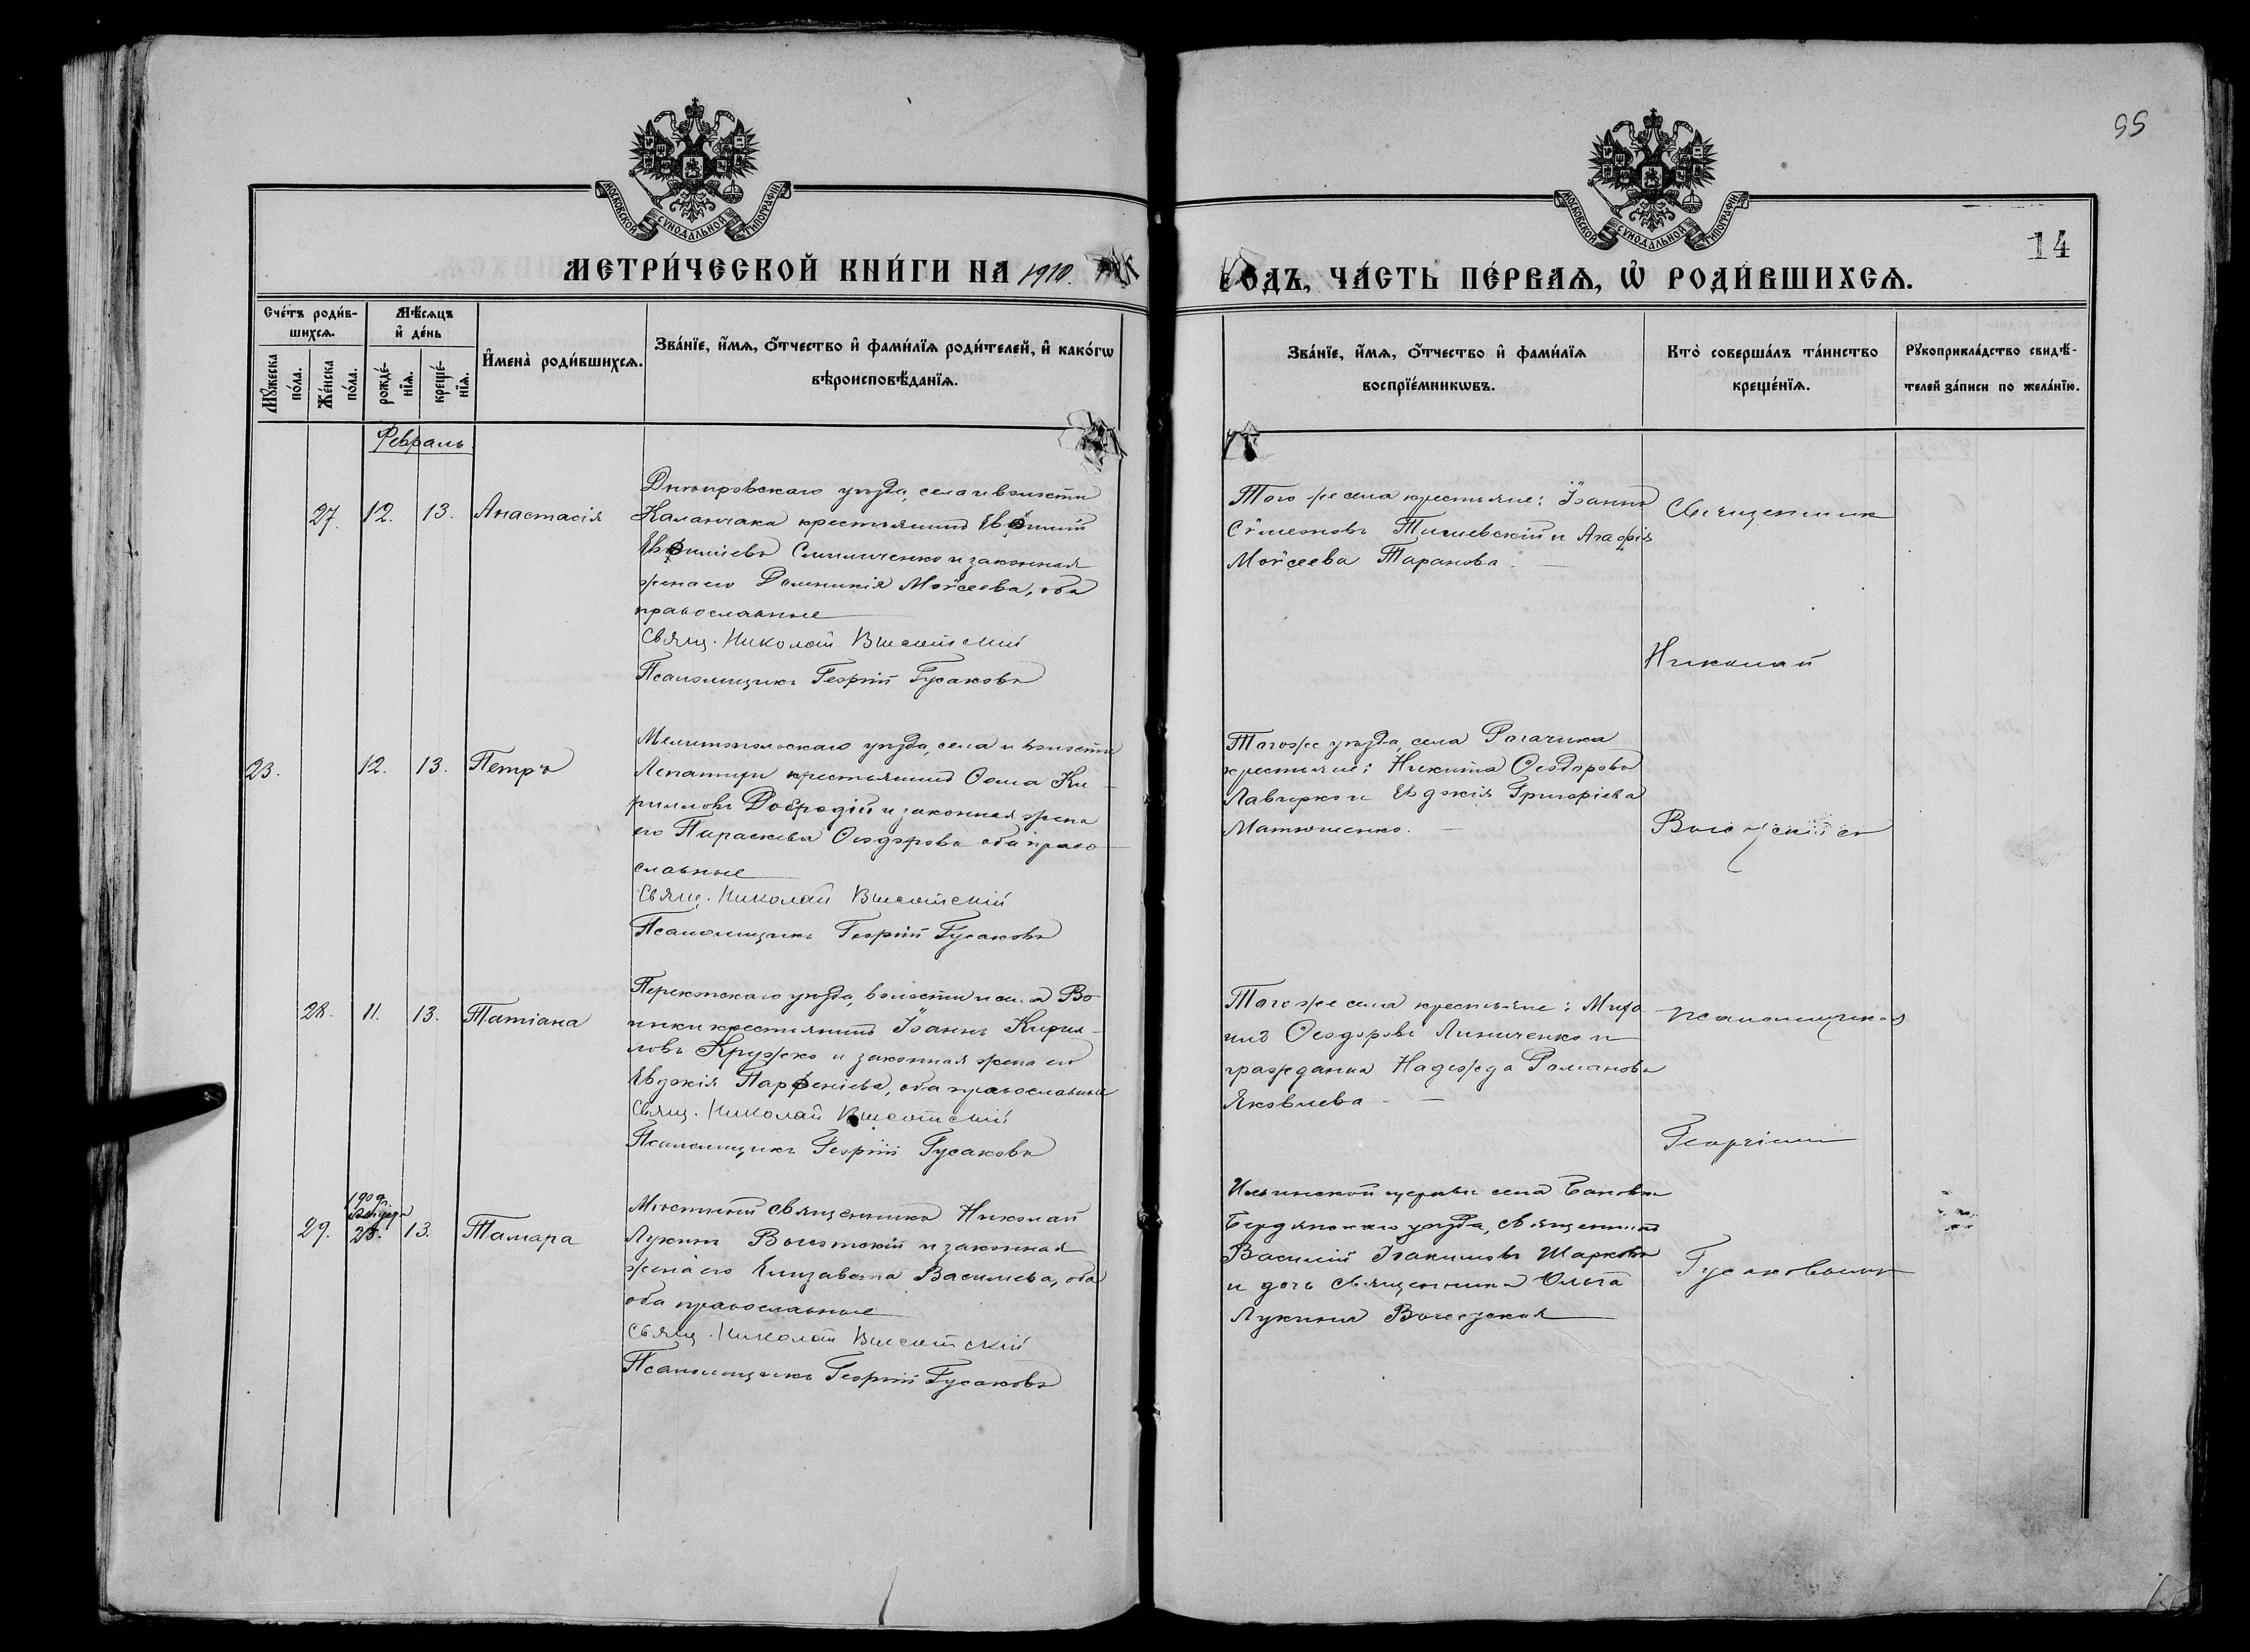 55
14
МОСКОВСКОЙ СѴНОДАЛЬНОЙ ТИПОГРАФІИ
МОСКОВСКОЙ СѴНОДАЛЬНОЙ ТИПОГРАФІИ
МЕТРИ́ЧЕСКОЙ КНИ́ГИ НА 1910.
ГОДЪ, ЧА́СТЬ ПЕ́РВАѦ, Ѡ РОДИ́ВШИХСѦ.
Сче́тъ роди́в-
шихсѧ.
Мꙋ́жеска
по́ла.
Же́нска
по́ла.
Мѣ́сѧцъ
и҆ де́нь
рожде́-
нїѧ.
креще́-
нїѧ.
И҆мена̀ роди́вшихсѧ.
Зва́нїе, и҆́мѧ, ѻ҆́тчество и҆ фами́лїѧ роди́телей, и҆ како́гѡ
вѣроисповѣ́данїѧ.
Зва́нїе, и҆́мѧ, ѻ҆́тчество и҆ фами́лїѧ
воспрїе́мникѡвъ.
Кто̀ соверша́лъ та́инство
креще́нїѧ.
Рꙋкоприкла́дство свидѣ́-
телей за́писи по жела́нїю.
Февраль
27. 12. 13. Анастасія
Днѣпровскаго уѣзда, села и волости
Каланчака крестьянинъ Евѳимій
Евѳиміевъ и законная
жена его Домникія Моѵсеева, оба
православные
Свящ. Николай Высотскій
Псаломщикъ Георгій Гусаковъ
Того же села крестьяне: Іоаннъ
Сѵмеоновъ и Агафія
Моѵсеева Таранова
Священник
Николай
23. 12. 13. Петръ
Мелитопольскаго уѣзда, села и волости
Лепатихи крестьянинъ Ѳома Ки-
рилловъ и законная жена
его Параскева Ѳеодорова оба право-
славные
Свящ. Николай Высотскій
Псаломщикъ Георгій Гусаковъ
Того же уѣзда, села Рогачика
крестьяне: Никита Ѳеодоровъ
и Евдокія Григоріева
Матюшенко.
28. 11. 13. Татіана
Перекопскаго уѣзда, волости и села Во-
инки крестьянинъ Іоаннъ Кирил-
ловъ Кружко и законная жена его
Евдокія Парѳеніева, оба православные
Свящ. Николай Высотскій
Псаломщикъ Георгій Гусаковъ
Того же села крестьяне: Миха
илъ Ѳеодоровъ Линиченко и
гражданка Надежда Романова
Яковлева
псаломщиком
Георгіем
29. 1909 28. 13. Тамара
Мѣстный священникъ Николай
Лукинъ Высотскій и законная
жена его Елизавета Васильева, оба
оба православные
Свящ. Николай Высотскій
Псаломщикъ Георгій Гусаковъ
Ильинской церкви села
Бердянскаго уѣзда, священникъ
Василій Іоакимовъ
и дочь священника Ольга
Лукина Высотская
Гусаковым